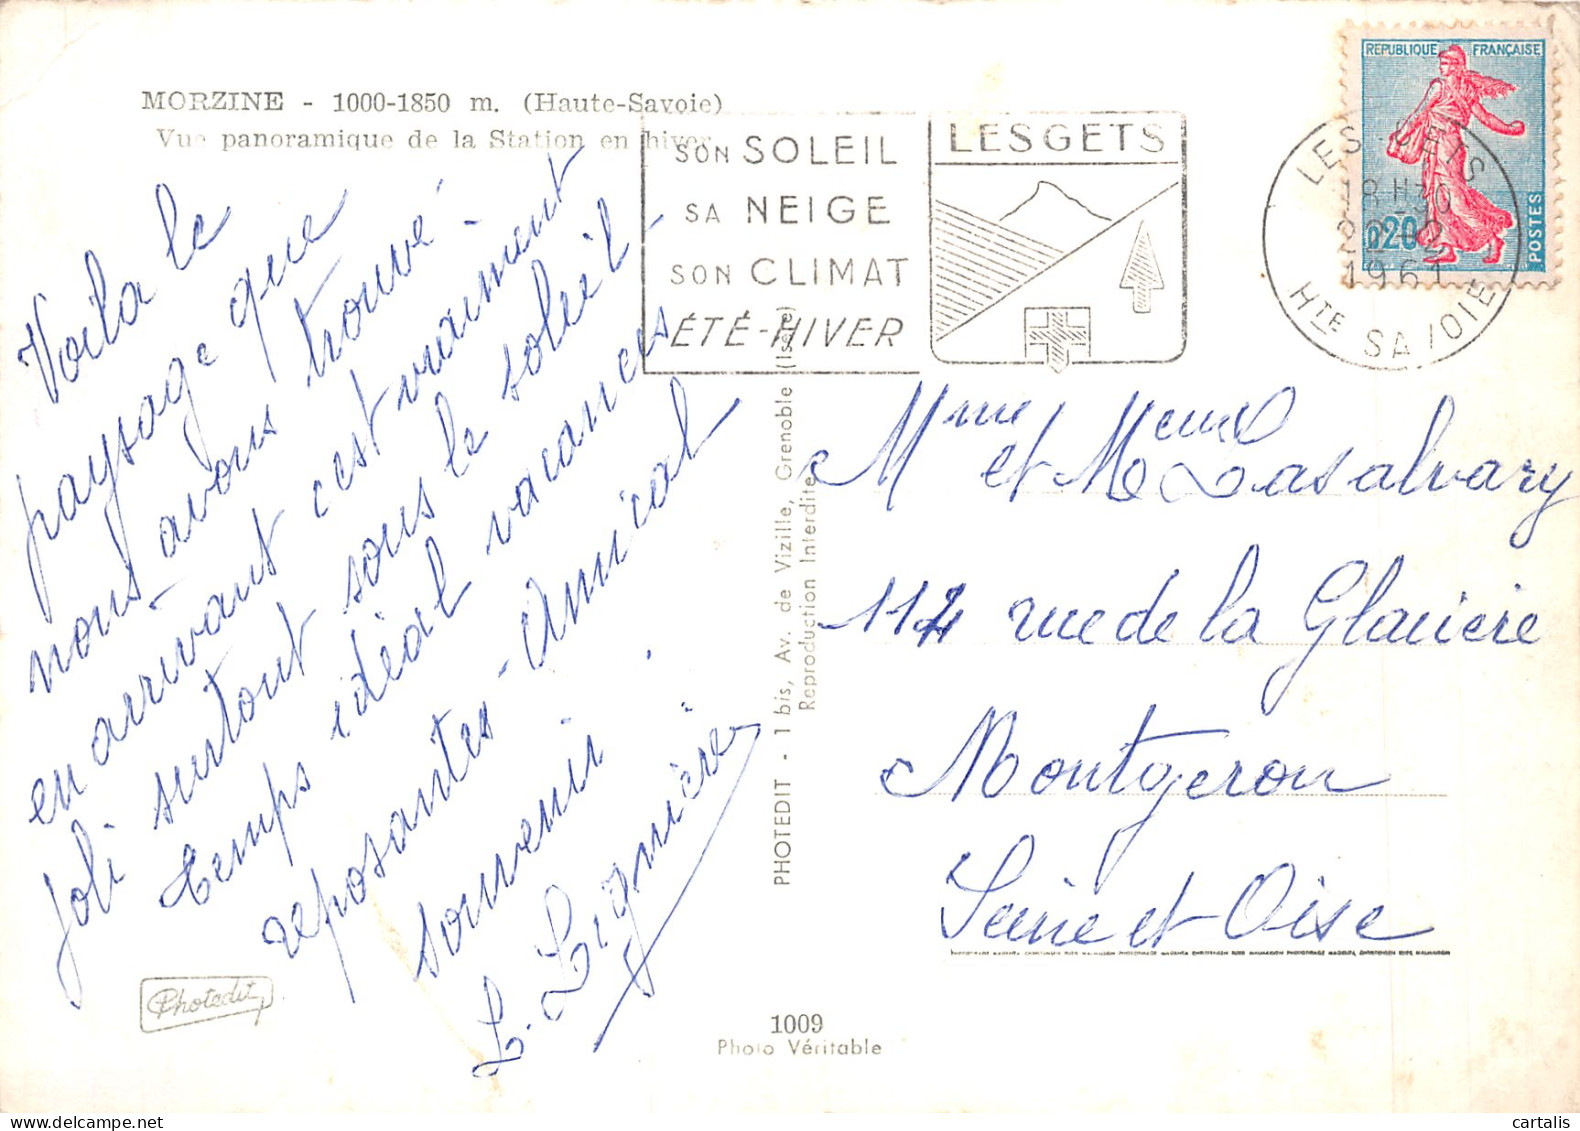 MORZINE - 1000-1850 m. (Haute-Savoie)
Vue panoramique de la Station en hiver
Voila le
paysage que
nous avons trouvé -
en arrivant c'est vraiment
joli surtout sous le soleil -
temps idéal vacances
reposantes - Amical
souvenir.
L. Lignière
Photedit
SON SOLEIL
SA NEIGE
SON CLIMAT
ÉTÉ-HIVER
LES GETS
REPUBLIQUE FRANÇAISE
0,20
POSTES
LES GETS
18 H 30
1961
HTE SAVOIE
Mme et M Lasalvary
114 rue de la Glacière
Montgeron
Seine et Oise
PHOTEDIT - 1 bis, Av. de Vizille, Grenoble (Isère)
Reproduction Interdite
1009
Photo Véritable
cartalis